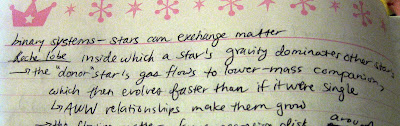 binary systems - stars can exchange matter
Roche lobe inside which a star's gravity dominates other star's
→ the "donor" star's gas flows to lower-mass companion,
which then evolves faster than if it were single
↳ AWW relationships make them grow
around